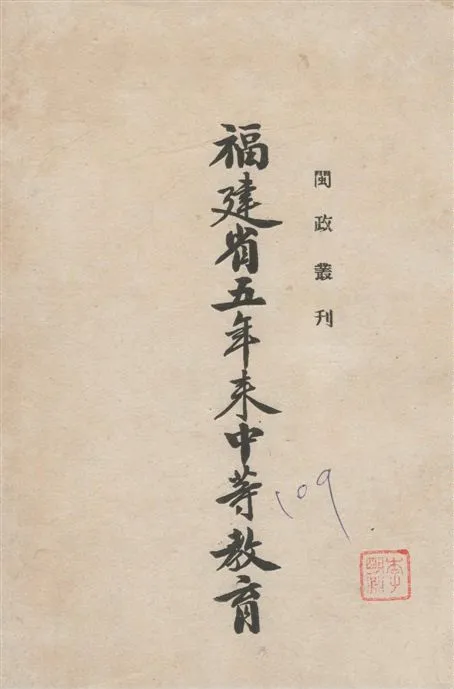 閩政叢刊
福建省五年来中等教育
109